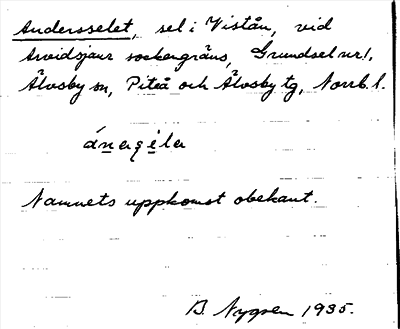 Andersselet, sel i Vistån, vid
Arvidsjaur sockengräns, Grundsel nr 1,
Älvsby sn, Piteå och Älvsby tg, Norrb. l.
Namnets uppkomst obekant.
B. Nygren 1935.